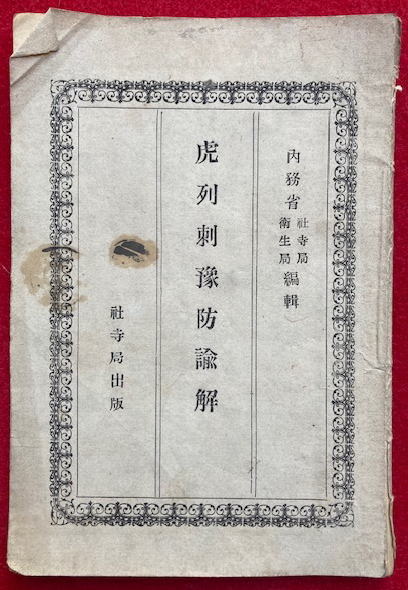 内務省 社寺局 衛生局 編輯
虎列刺豫防諭解
社寺局出版